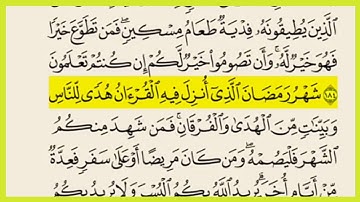 الَّذِينَ يُطِيقُونَهُۥ فِدْيَةٌ طَعَامُ مِسْكِينٍ ۖ فَمَن تَطَوَّعَ خَيْرًا
فَهُوَ خَيْرٌ لَّهُۥ ۚ وَأَن تَصُومُوا۟ خَيْرٌ لَّكُمْ إِن كُنتُمْ تَعْلَمُونَ
١٨٤ شَهْرُ رَمَضَانَ الَّذِىٓ أُنزِلَ فِيهِ الْقُرْءَانُ هُدًى لِّلنَّاسِ
وَبَيِّنَٰتٍ مِّنَ الْهُدَىٰ وَالْفُرْقَانِ ۚ فَمَن شَهِدَ مِنكُمُ
الشَّهْرَ فَلْيَصُمْهُ ۖ وَمَن كَانَ مَرِيضًا أَوْ عَلَىٰ سَفَرٍ فَعِدَّةٌ
مِّنْ أَيَّامٍ أُخَرَ ۗ يُرِيدُ اللَّهُ بِكُمُ الْيُسْرَ وَلَا يُرِيدُ بِكُمُ